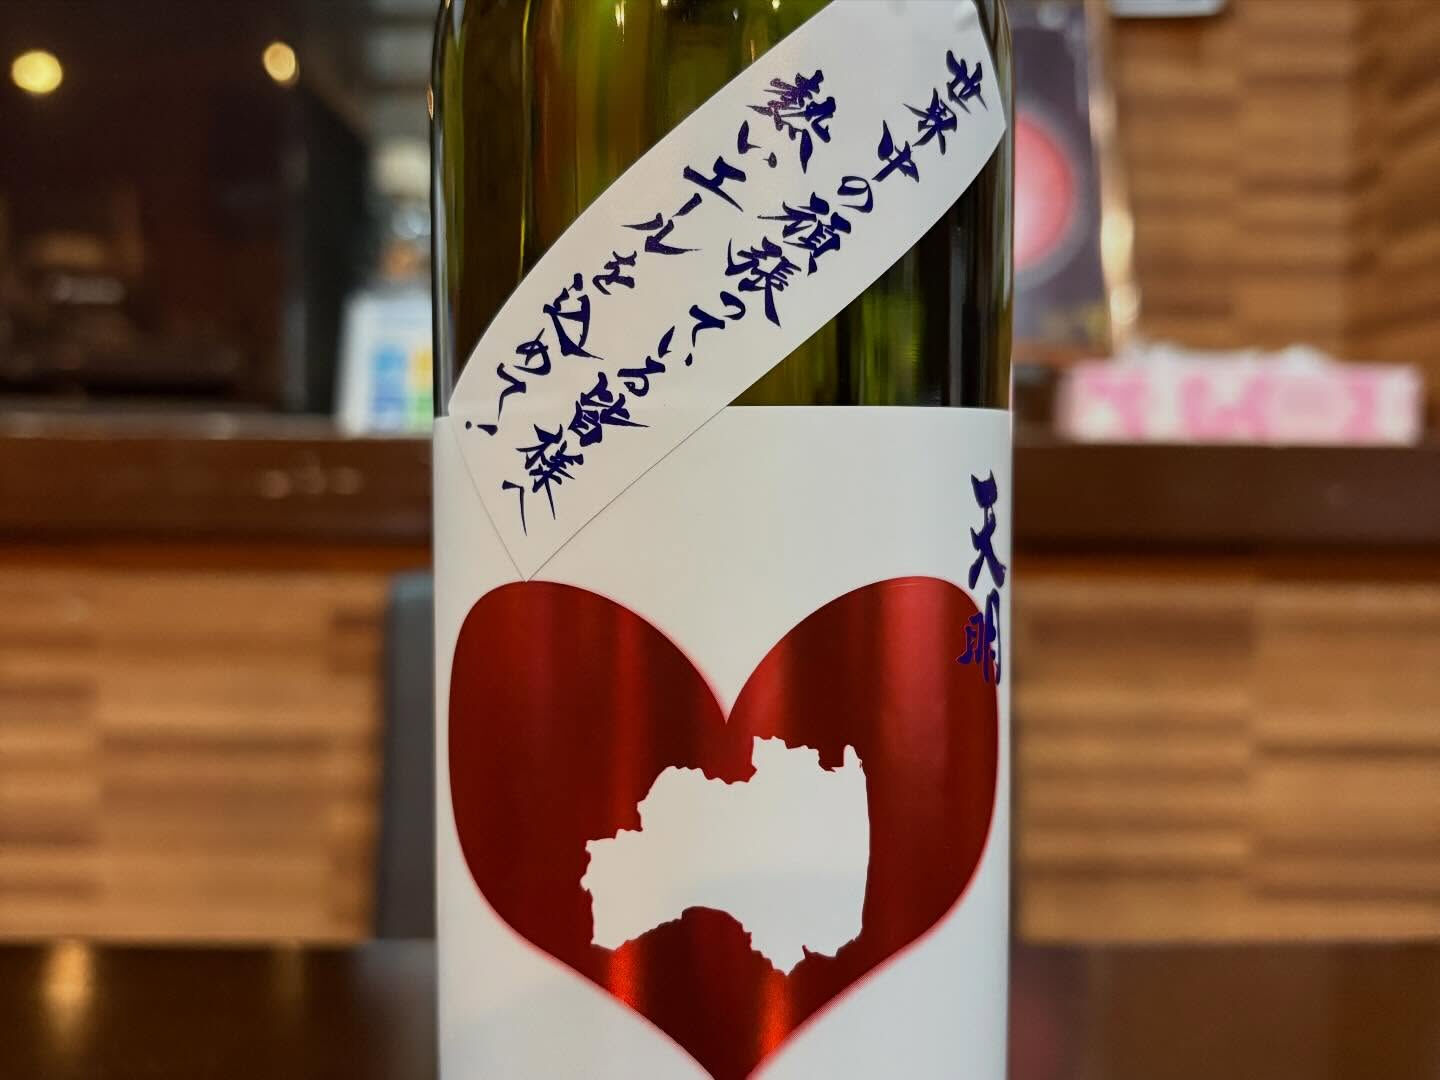 世界中の頑張っている皆様へ
熱いエールを込めて!
天明